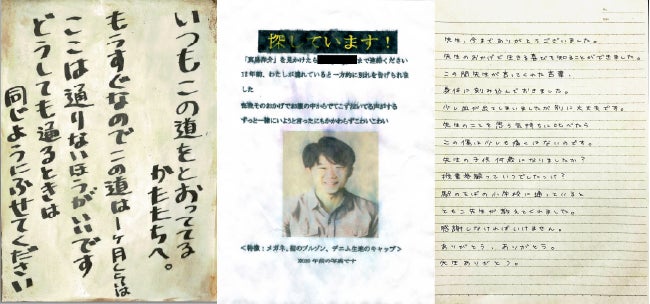 いつもこの道をとおってる
かたたちへ。
もうすぐなのでこの道は1ヶ月くらいは
ここは通りないほうがいいです
どうしても通るときは
同じようにふせてください
探しています!
まで連絡ください
12年前、わたしが連れていると一方的に別れを告げられま
した
ずっと一緒にいようと言ったにもかかわらずこわいこわい
<特徴:メガネ、紺のブルゾン、デニム生地のキャップ>
※20年前の写真です
先生、今までありがとうございました。
先生のおかげで生きる喜びを知ることができました。
この間先生が言ってくれた言葉、
身体に刻み込んでおきました。
少し血が出てしまいましたが別に大丈夫です。
先生のことを思う気持ちに比べたら
この傷は少しも痛くはないのです。
先生の子供何歳になりましたか?
授業参観っていつでしたっけ?
駅のそばの小学校に通っていると
ともこ先生が教えてくれました。
感謝しなければいけません。
ありがとう、ありがとう。
先生ありがとう。